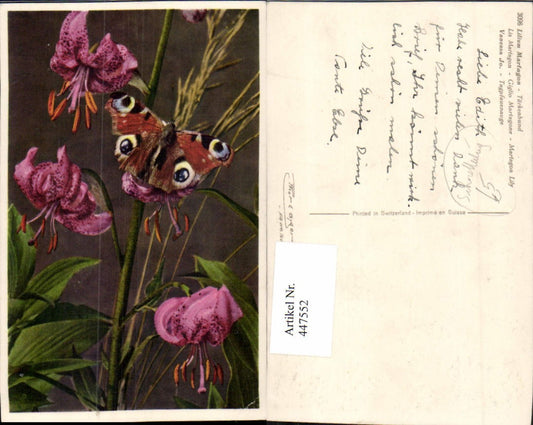 3036 Lilium Martagon - Türkenbund
Lis Martagon - Giglio Martagone - Martagon Lily
Vanessa Jo. - Tagpfauenauge
Liebe Edith
Habe recht vielen Dank
für Deinen schönen
Brief, Ihr könnt wirk-
lich schön malen.
Viele Grüsse Deine
Tante Elsa.
Printed in Switzerland - Imprimé en Suisse
Artikel Nr.
447552